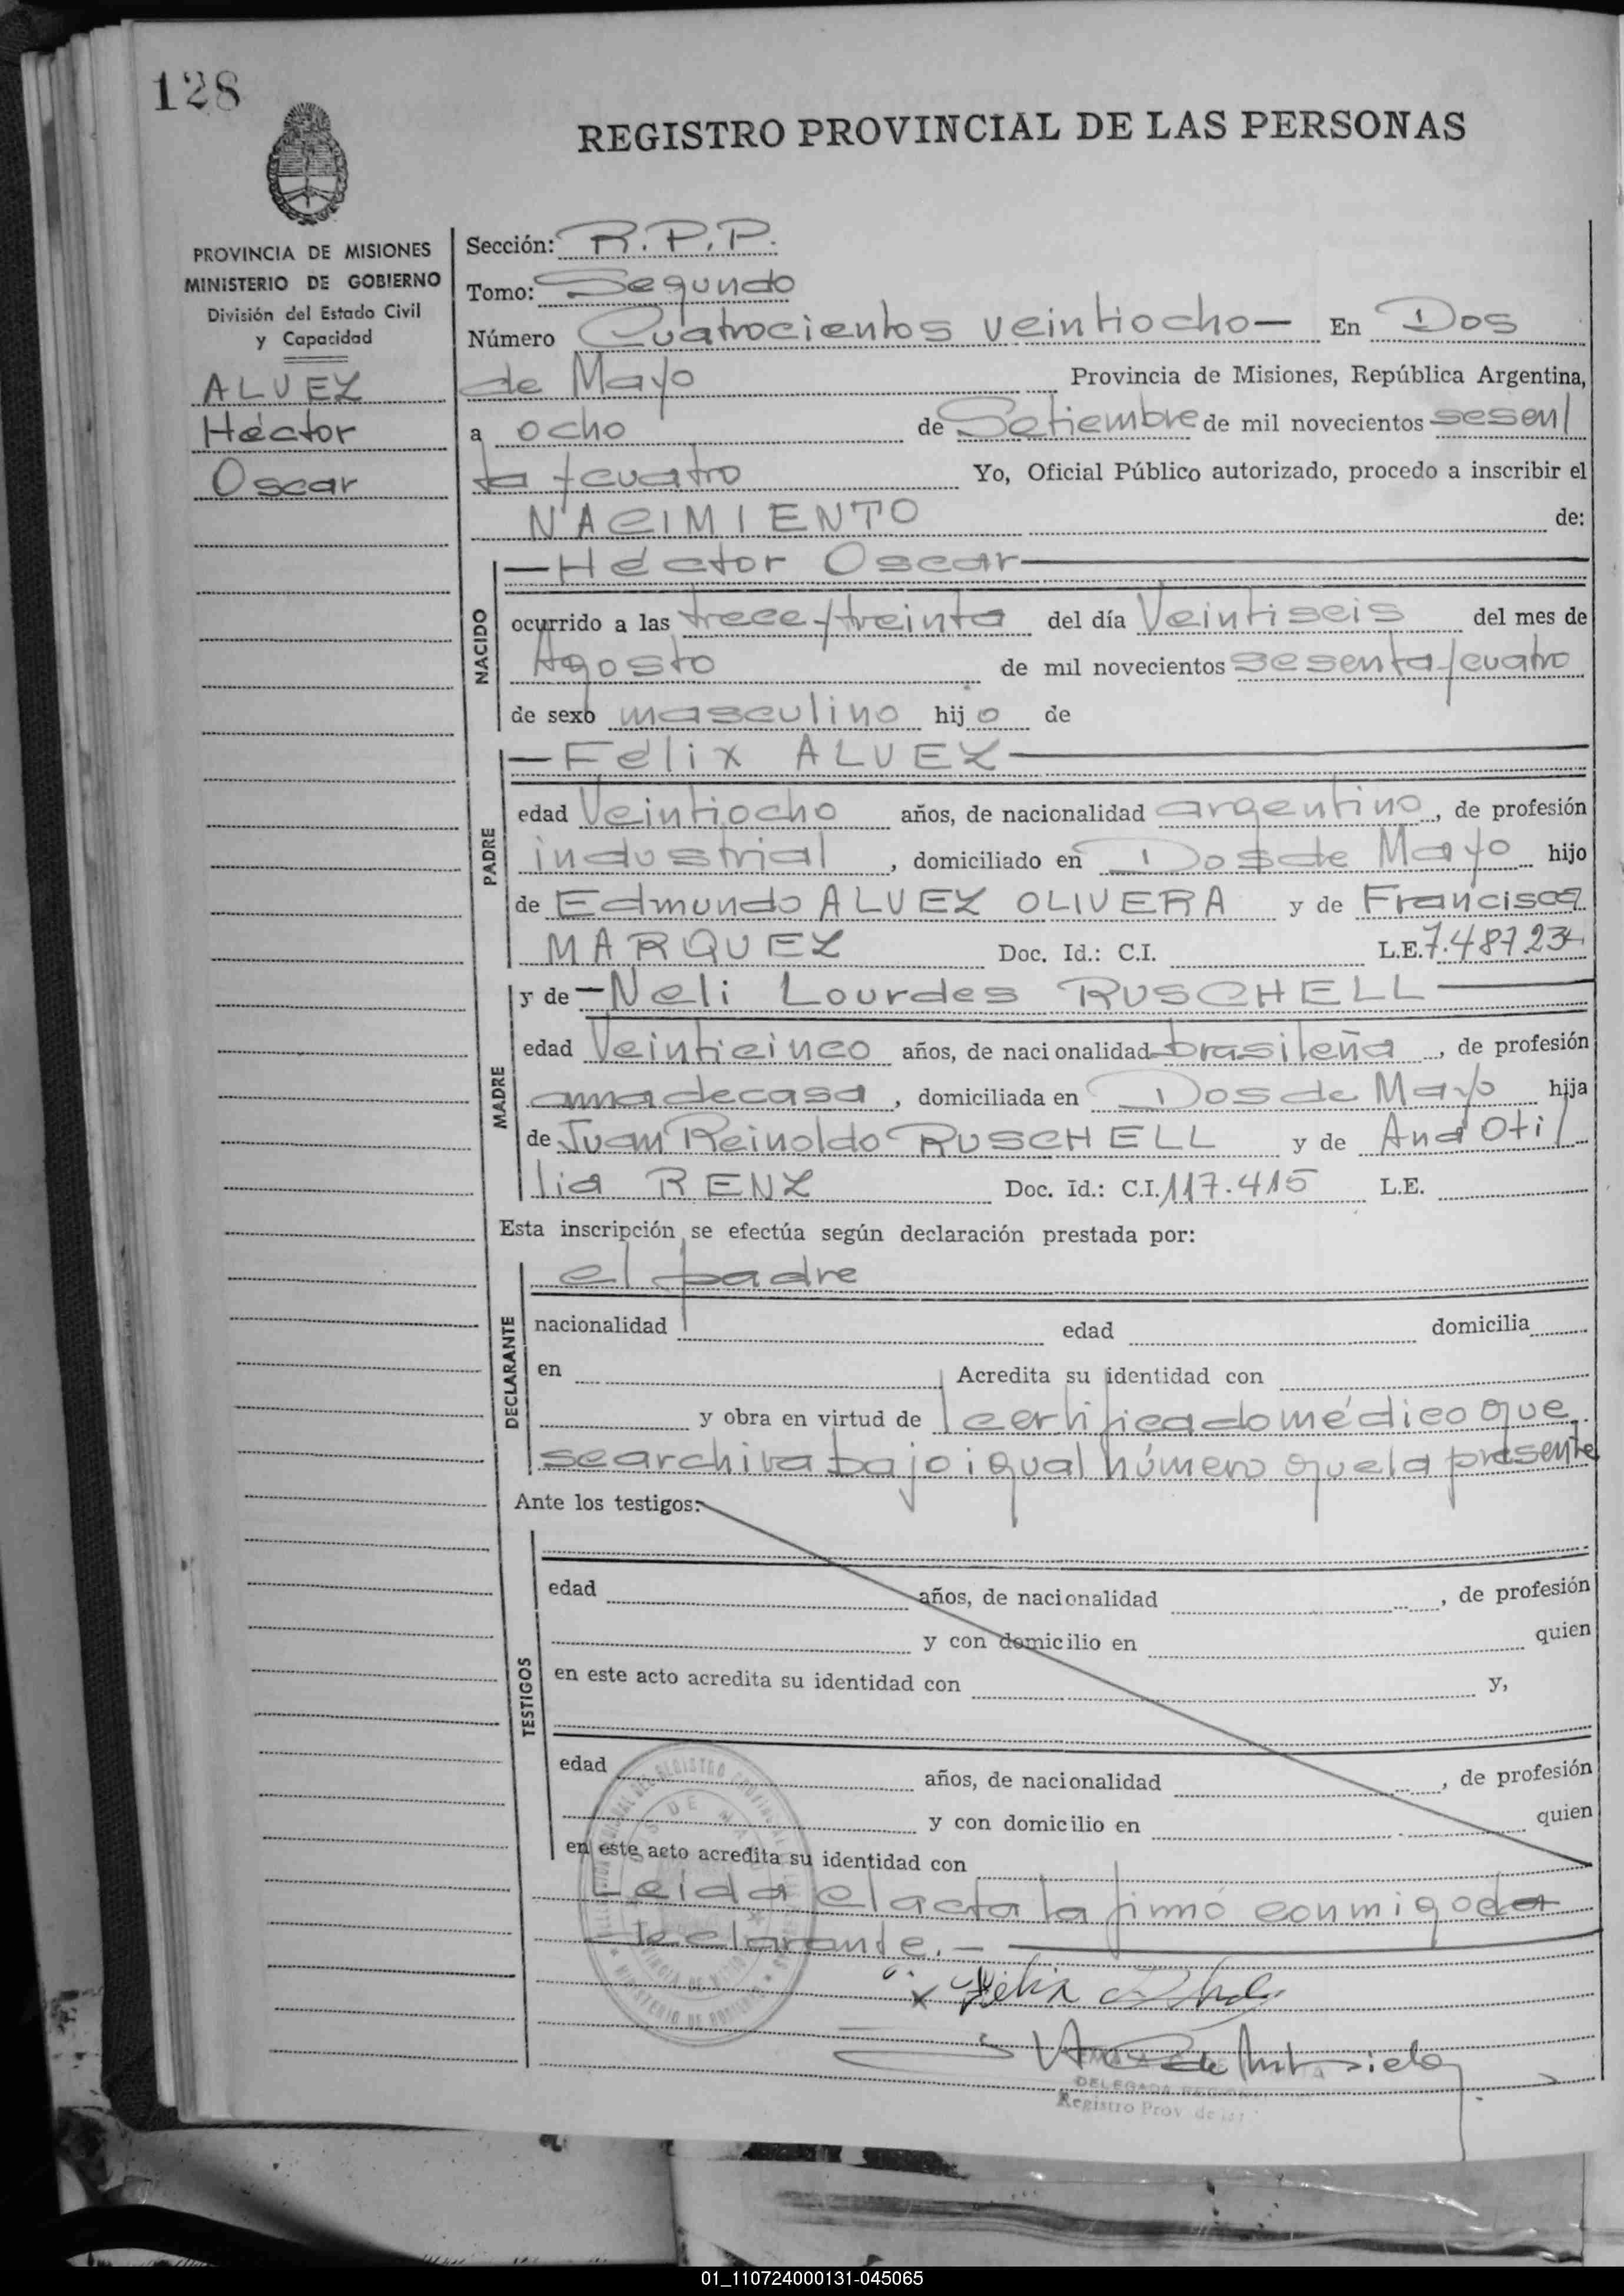 128
REGISTRO PROVINCIAL DE LAS PERSONAS
PROVINCIA DE MISIONES
MINISTERIO DE GOBIERNO
División del Estado Civil
y Capacidad
ALVEZ
Héctor
Oscar
Sección: R.P.P.
Tomo: Segundo
Número Cuatrocientos veintiocho— En Dos
de Mayo Provincia de Misiones, República Argentina,
a ocho de Setiembre de mil novecientos sesen/
ta y cuatro Yo, Oficial Público autorizado, procedo a inscribir el
NACIMIENTO de:
NACIDO
—Héctor Oscar—
ocurrido a las trece y treinta del día Veintiseis del mes de
Agosto de mil novecientos sesenta y cuatro
de sexo masculino hijo de
PADRE
—Félix ALVEZ—
edad Veintiocho años, de nacionalidad argentino, de profesión
industrial, domiciliado en Dos de Mayo hijo
de Edmundo ALVEZ OLIVERA y de Francisca
MARQUEZ Doc. Id.: C.I. L.E. 7.487.234
MADRE
y de —Neli Lourdes RUSCHELL—
edad Veinticinco años, de nacionalidad brasileña, de profesión
ama de casa, domiciliada en Dos de Mayo hija
de Juan Reinoldo RUSCHELL y de Ana Oti/
lia RENZ Doc. Id.: C.I. 117.415 L.E.
Esta inscripción se efectúa según declaración prestada por:
DECLARANTE
el padre
nacionalidad edad domicilia
en Acredita su identidad con
y obra en virtud de certificado médico que
se archiva bajo igual número que la presente
Ante los testigos:
TESTIGOS
edad años, de nacionalidad , de profesión
y con domicilio en quien
en este acto acredita su identidad con y,
edad años, de nacionalidad , de profesión
y con domicilio en quien
en este acto acredita su identidad con
Leida el acta la firmó conmigo
declarante.—
x Félix
DELEGADA
Registro Prov. de las
01_110724000131-045065